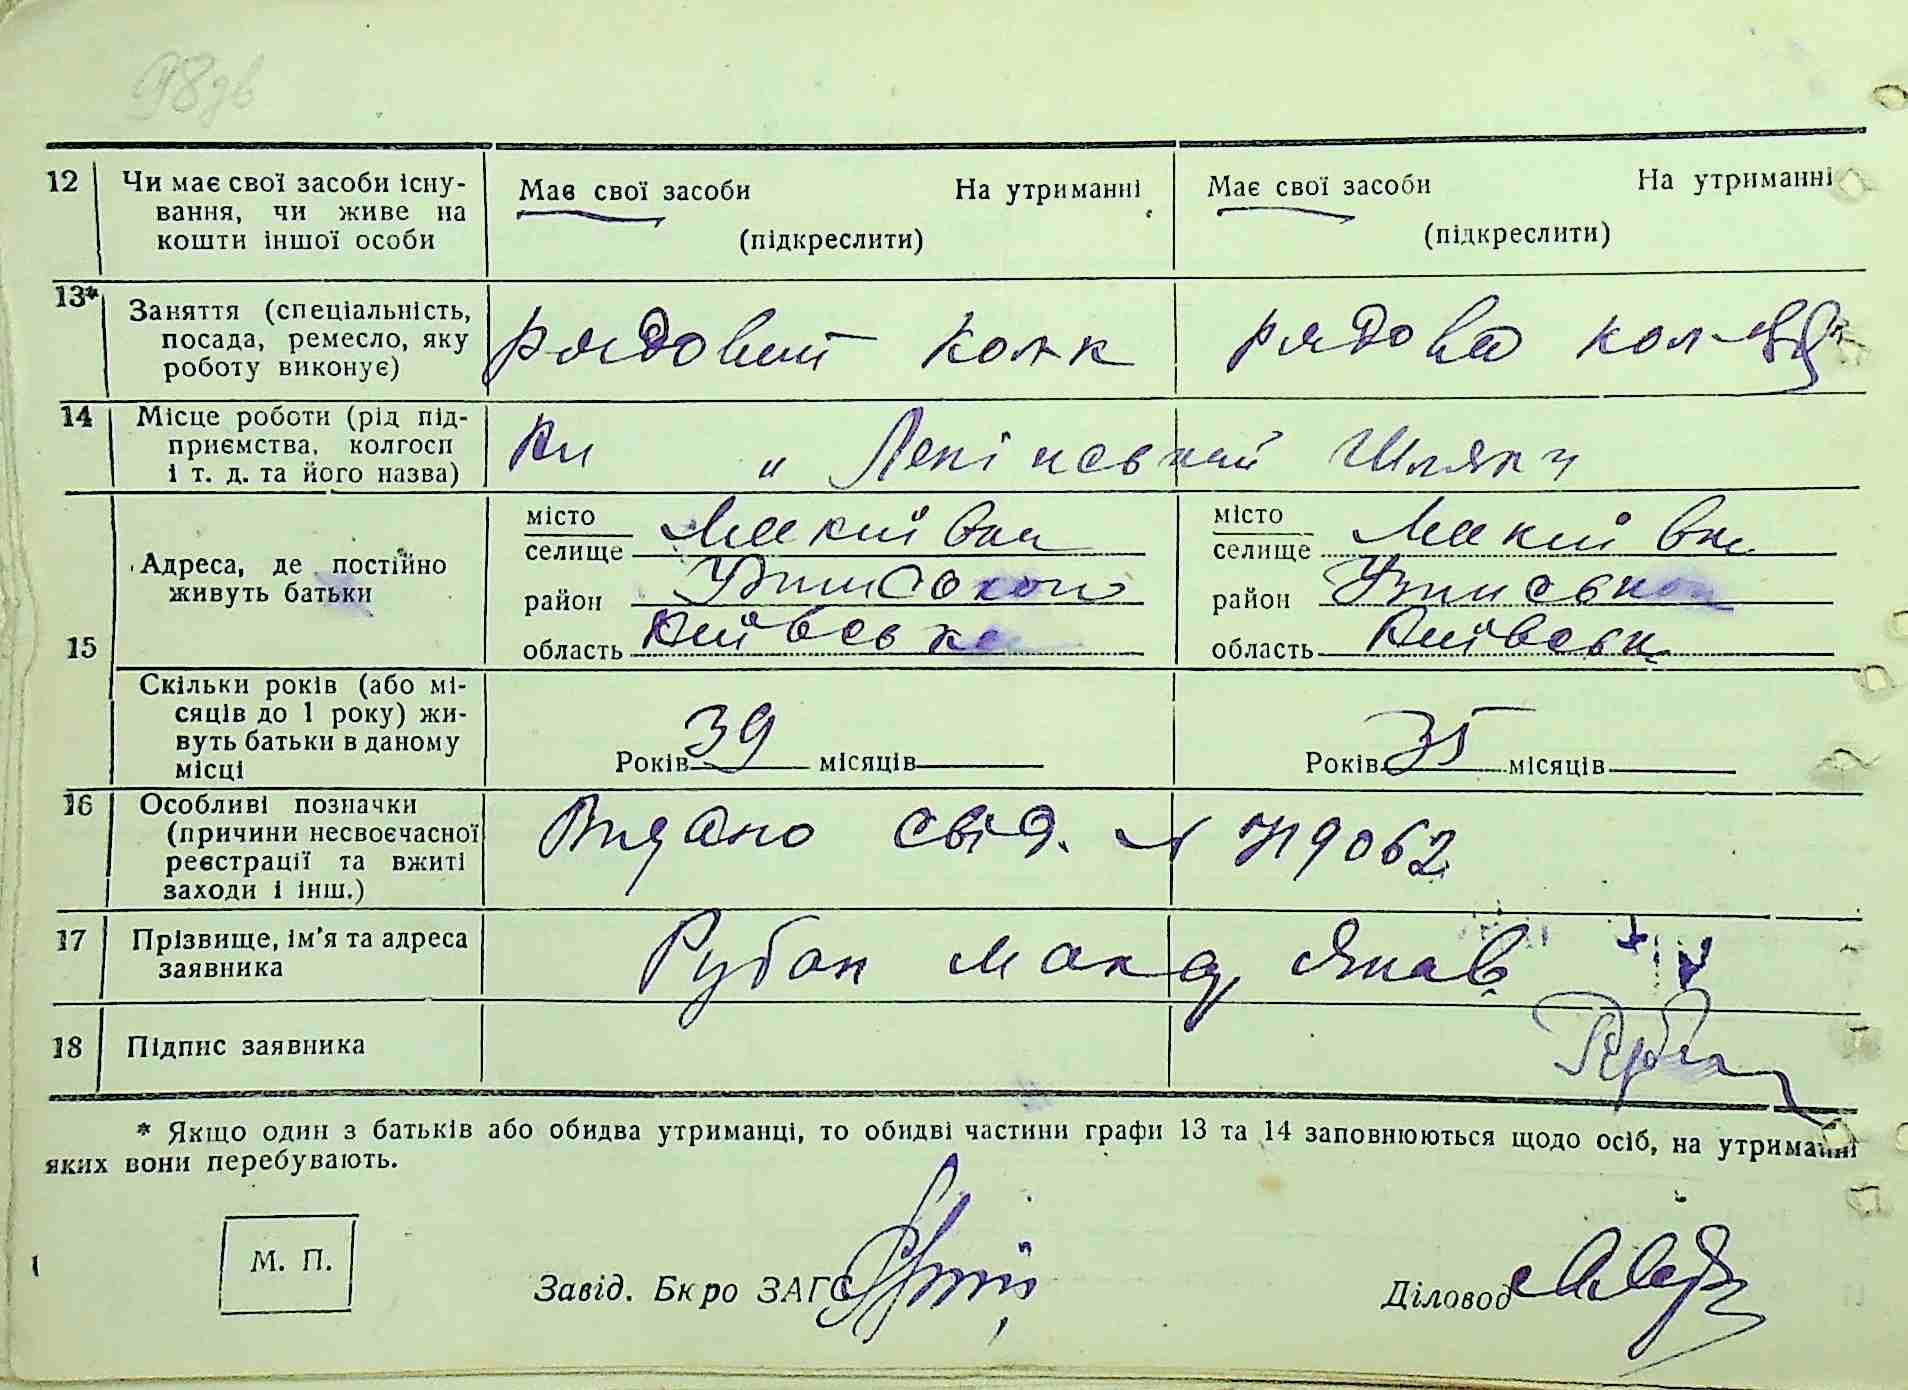 98зв
12 Чи має свої засоби існу- Має свої засоби На утриманні Має свої засоби На утриманні
вання, чи живе на (підкреслити) (підкреслити)
кошти іншої особи
13* Заняття (спеціальність, рядовий колк рядова кол-
посада, ремесло, яку
роботу виконує)
14 Місце роботи (рід під- Кл „ Ленінський Шлях"
приємства, колгосп
і т. д. та його назва)
15 Адреса, де постійно місто Македівка місто
живуть батьки селище Макиївка селище Макиївка
район район
область Київська область Київськ
Скільки років (або мі- Років 39 місяців Років 35 місяців
сяців до 1 року) жи-
вуть батьки в даному
місці
16 Особливі позначки Видано свід. №
(причини несвоєчасної
реєстрації та вжиті
заходи і інш.)
17 Прізвище, ім'я та адреса Рубан
заявника
18 Підпис заявника
* Якщо один з батьків або обидва утриманці, то обидві частини графи 13 та 14 заповнюються щодо осіб, на утриманні
яких вони перебувають.
М. П.
Завід. Бюро ЗАГС
Діловод